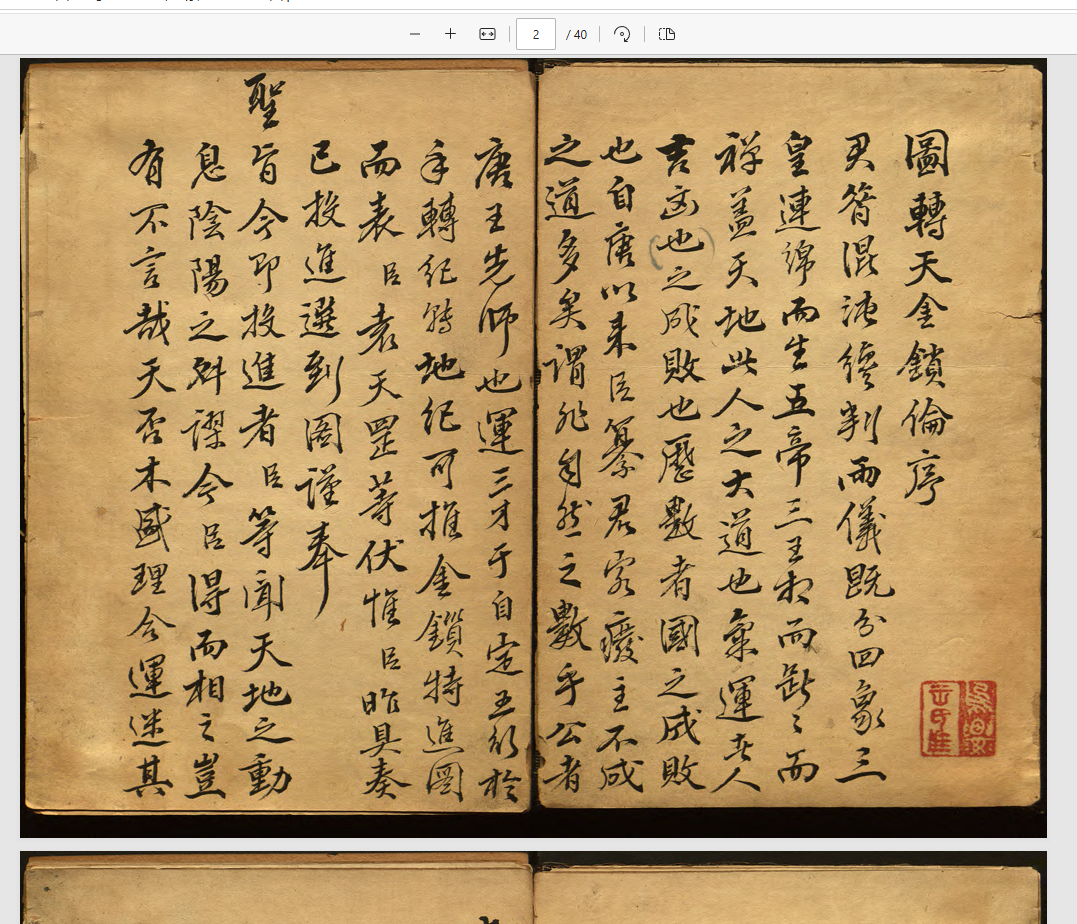 2
/ 40
圖轉天金鎖倫序
君 混沌 判兩儀既分四象三
皇連綿而生五帝三王相而 〻而
禪蓋天地此人之大道也氣運 人
吉凶也之成敗也歷數者國之成敗
也自唐以來臣纂君 廢主不成
之道多矣謂非自然之數乎公者
唐王先師也運三才于自定五行於
手轉紀 地紀可推金鎖特進圖
而表臣袁天罡等伏惟臣昨具奏
已投進選到圖謹奉
聖旨今即投進者臣等聞天地之動
息陰陽之 今臣得而相之豈
有不言哉天否木國理合運迷其